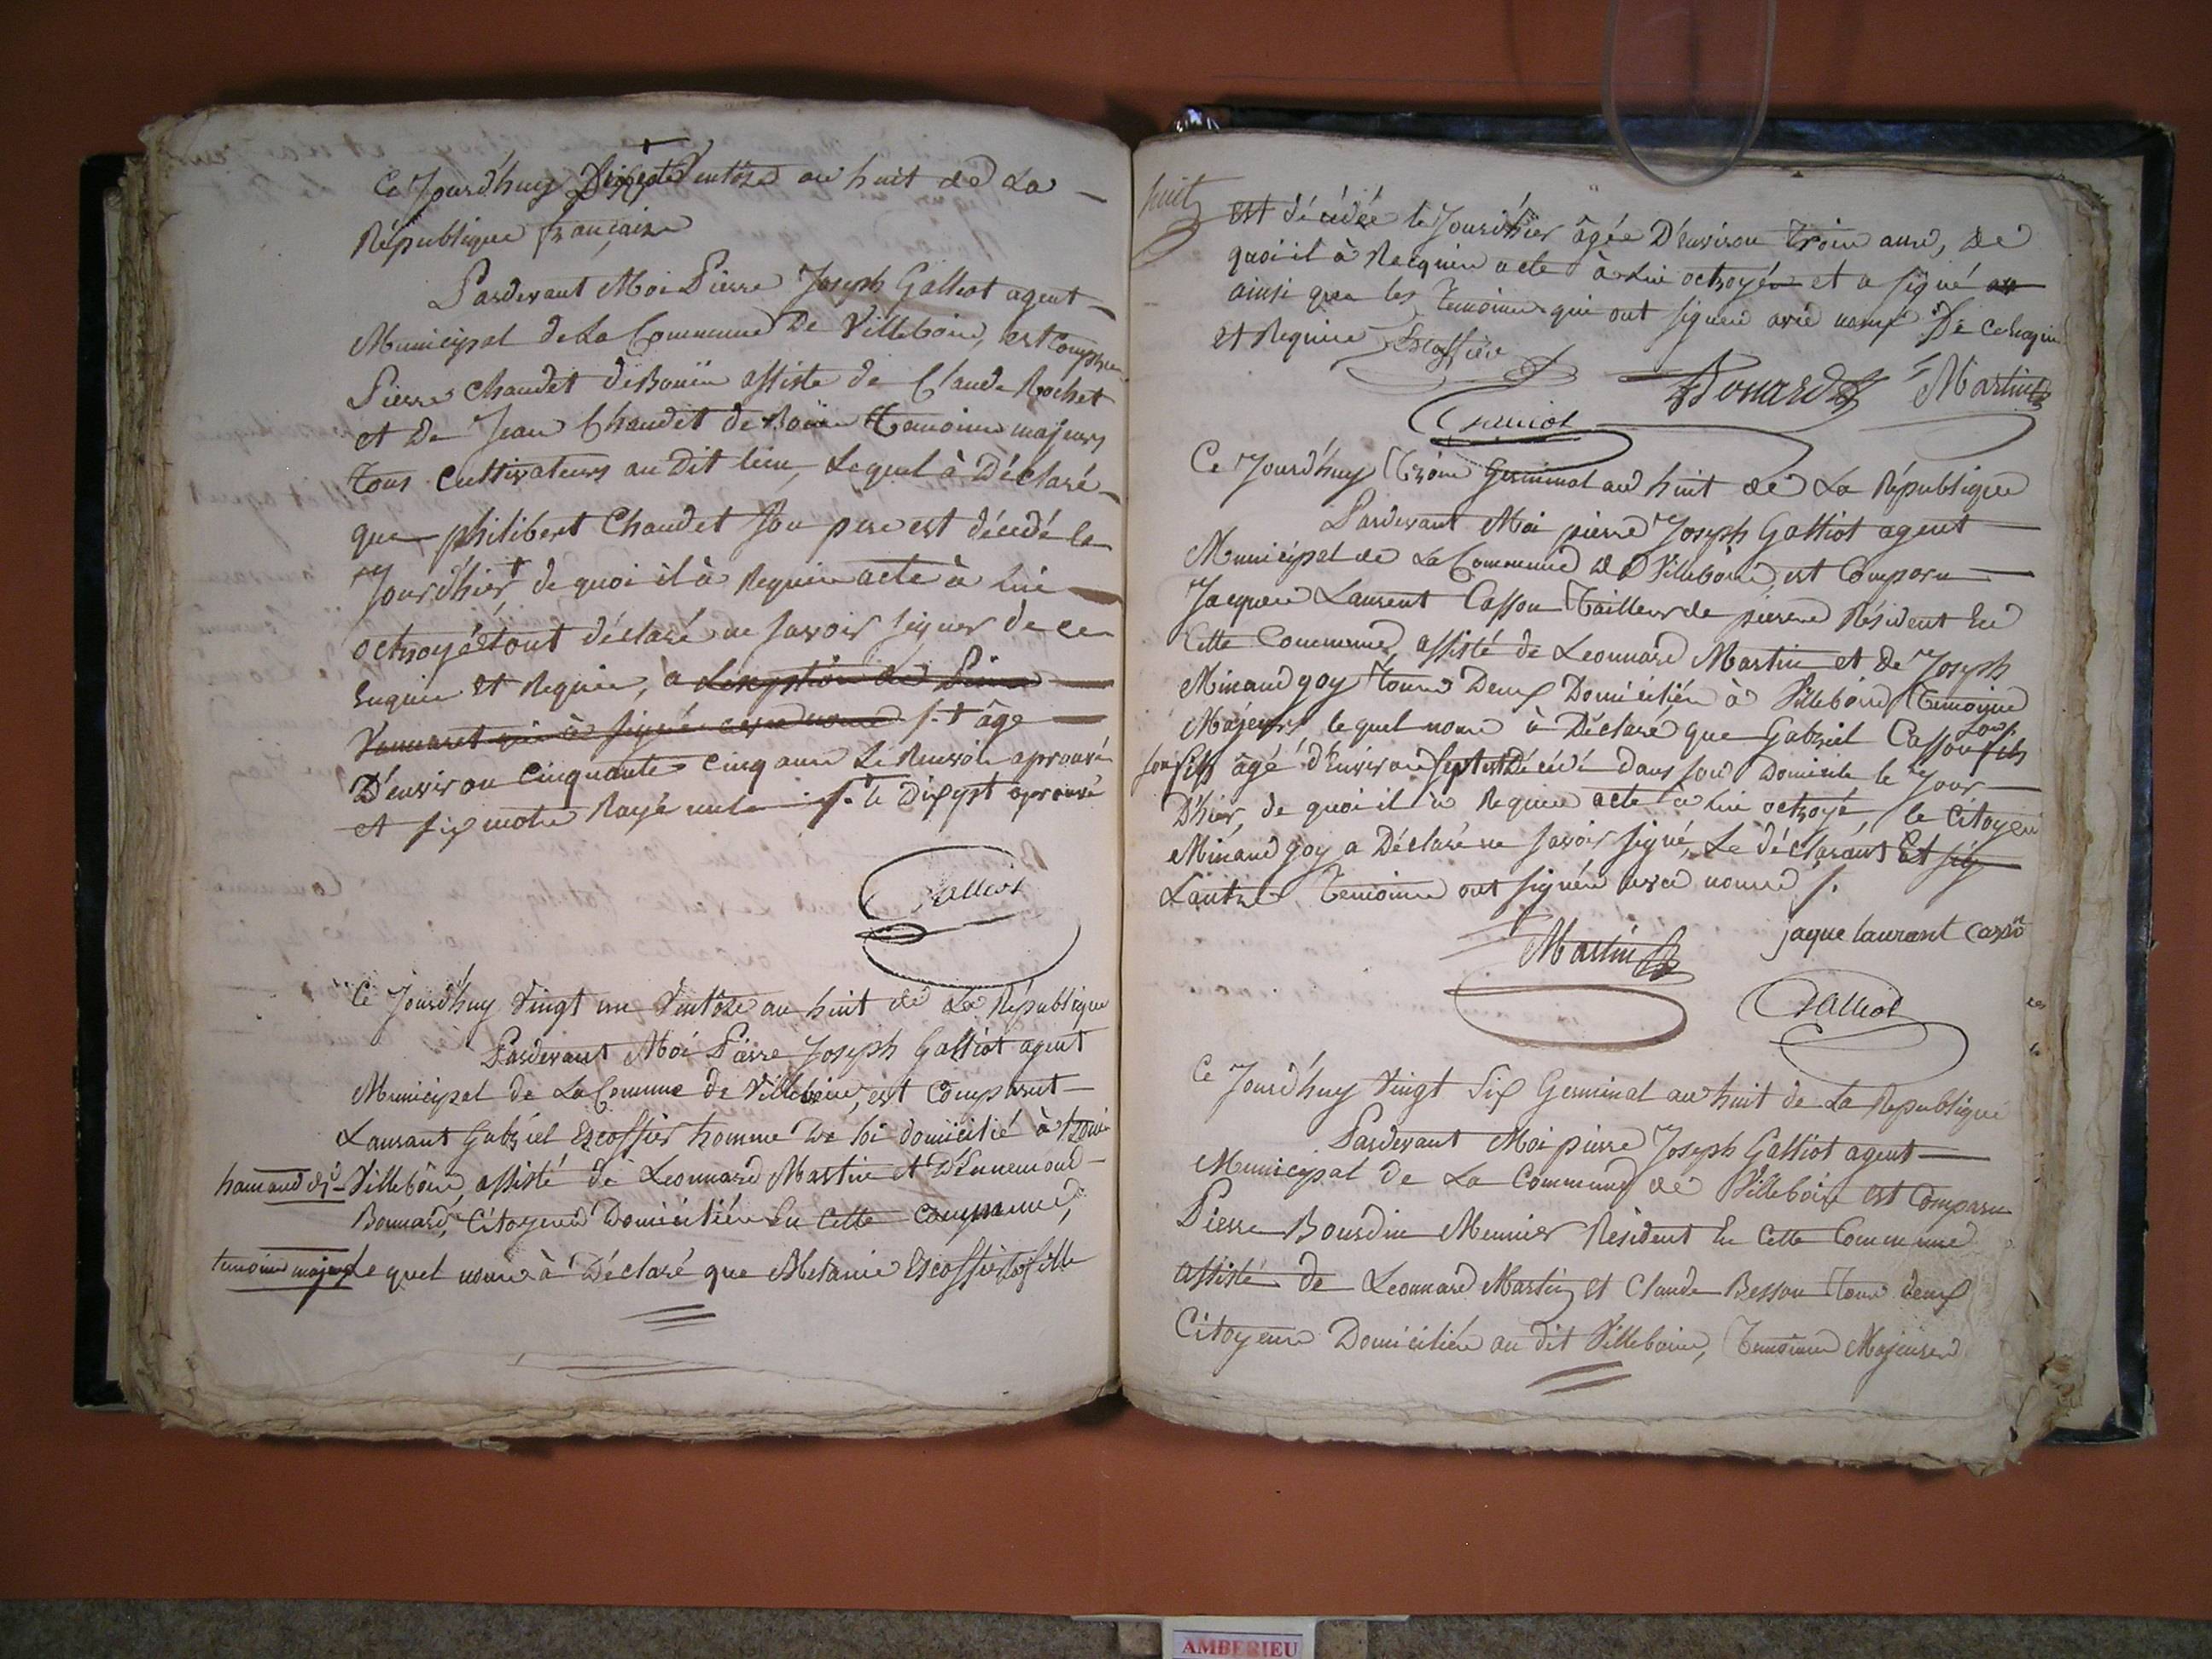 Ce Jourd'huy Dixsept Ventôse an huit de La
République française
Pardevant Moi Pierre Joseph Galliot agent
Municipal de La Commune De Villeboire, est Comparu
Pierre Chaudet de Bouïs assiste de Claude Rochet
et De Jean Chaudet de Bouïs Temoins majeurs
Tous Cultivateurs au Dit lieu, Lequel à Déclaré
que philibert Chaudet Son pere est décédé le
Jourd'hier + de quoi il à Requis acte à Lui
octroyé et ont déclaré ne savoir signer de ce
Enquis et Requis, a Lexception de Pierre
qui à signé avec nous /. + âge
D'environ Cinquante Cinq ans Le Renvoi aprouvé
et six mots Rayé nuls /. Le Dixsept aprouvé
Galliot
Ce Jourd'huy Vingt un Ventôse an huit de La République
Pardevant Moi Pierre Joseph Galliot agent
Municipal de La Commune de Villeboire, est Comparut
Laurant Gabriel Escoffier homme De loi domicilié à
hamaud de Villeboire, assisté de Leonnard Martin et D'Ennemond
Bonnard, Citoyens Domiciliés En Cette Commune,
temoins majeurs Le quel nous à Déclaré que Melanie Escoffier sa fille
huit
est décédée le Jourd'hier âgée D'Environ Trois ans, de
quoi il à Recquis acte à Lui octroyée et a signé
ainsi que les Temoins qui ont signés avec nous De ce
et Requis Escoffier
Bonard Martin
Galliot
Ce Jourd'huy Trois Germinal an huit de La République
Pardevant Moi pierre Joseph Galliot agent
Municipal de La Commune de Villeboire est Comparu
Jacques Laurent Casson Tailleur de pierre Résident En
Cette Commune, assisté de Leonnard Martin et de Joseph
Minand goy Tous Deux Domiciliés à Villeboire Temoins
Majeurs, lequel nous à Déclaré que Gabriel Casson fils
son fils âgé d'Environ sept est Décédé Dans son Domicile le Jour
D'hier, de quoi il à Requis acte à Lui octroyé, le Citoyen
Minand goy a Déclaré ne savoir signé, Le déclarant Et sig
L'autre Temoins ont signés avec nous /.
Martin jaque laurant Casson
Galliot
Ce Jourd'huy Vingt Six Germinal an huit de La République
Pardevant Moi pierre Joseph Galliot agent
Municipal de La Commune de Villeboire est Comparu
Pierre Bourdin Meunier Résident En Cette Commune
assisté de Leonnard Martin et Claude Besson Tous deux
Citoyens Domiciliés au dit Villeboire, Temoins Majeurs
AMBERIEU